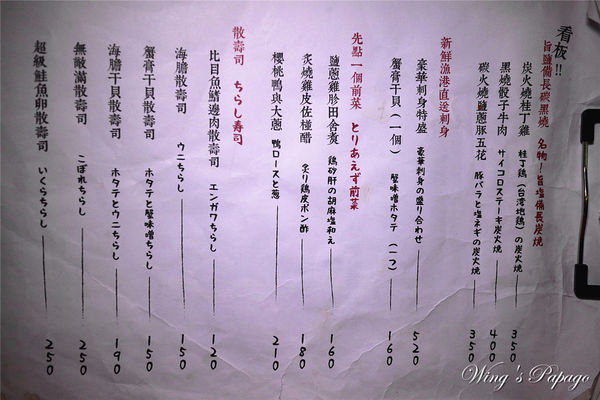 看板!!
旨鹽備長碳黑燒 名物！旨塩備長炭焼
炭火燒桂丁雞 桂丁鶏（台湾地鶏）の炭火焼 350
黑燒骰子牛肉 サイコロステーキ炭火焼 400
碳火燒鹽蔥豚五花 豚バラと塩ネギの炭火焼 350
新鮮漁港直送刺身
豪華刺身特盛 豪華刺身の盛り合わせ 520
蟹膏干貝（一個） 蟹味噌ホタテ（一つ） 160
先點一個前菜 とりあえず前菜
鹽蔥雞胗田舍煮 鶏砂肝の胡麻塩和え 160
炙燒雞皮佐椪醋 炙り鶏皮ポン酢 180
櫻桃鴨與大蔥 鴨ロースと葱 210
散壽司 ちらし寿司
比目魚鰭邊肉散壽司 エンガワちらし 120
海膽散壽司 ウニちらし 150
蟹膏干貝散壽司 ホタテと蟹味噌ちらし 150
海膽干貝散壽司 ホタテとウニちらし 190
無敵滿散壽司 こぼれちらし 250
超級鮭魚卵散壽司 いくらちらし 250
Wing's Papago